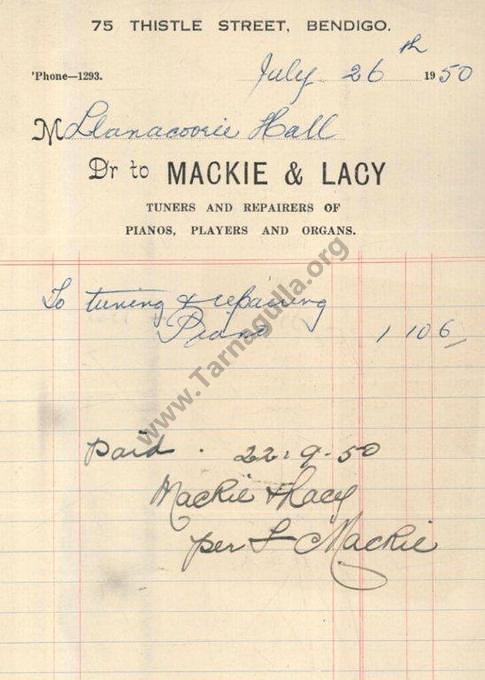 75 THISTLE STREET, BENDIGO.
'Phone—1293.
July 26th 1950
M Llanacoorie Hall
Dr to MACKIE & LACY
TUNERS AND REPAIRERS OF
PIANOS, PLAYERS AND ORGANS.
To tuning & repairing
Piano 1 10 6
paid . 22.9.50
Mackie & Lacy
per L Mackie
www.Tarnagulla.org